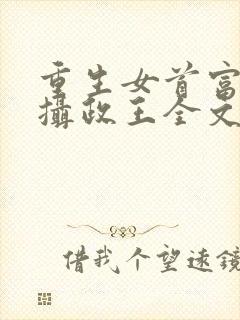 重生女首富
攝政王全文
借我个望远镜